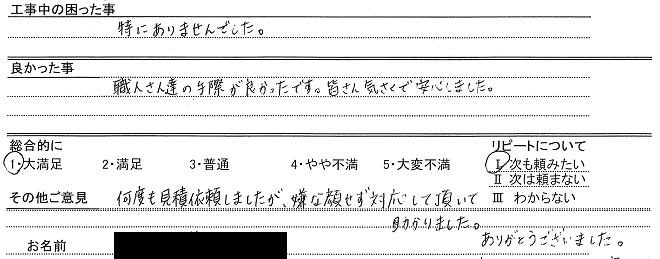 工事中の困った事
特にありませんでした。
良かった事
職人さん達の手際が良かったです。皆さん気さくで安心しました。
総合的に リピートについて
1・大満足 2・満足 3・普通 4・やや不満 5・大変不満 Ⅰ 次も頼みたい
Ⅱ 次は頼まない
その他ご意見 何度も見積依頼しましたが、嫌な顔せず対応して頂いて Ⅲ わからない
助かりました。
お名前 ありがとうございました。